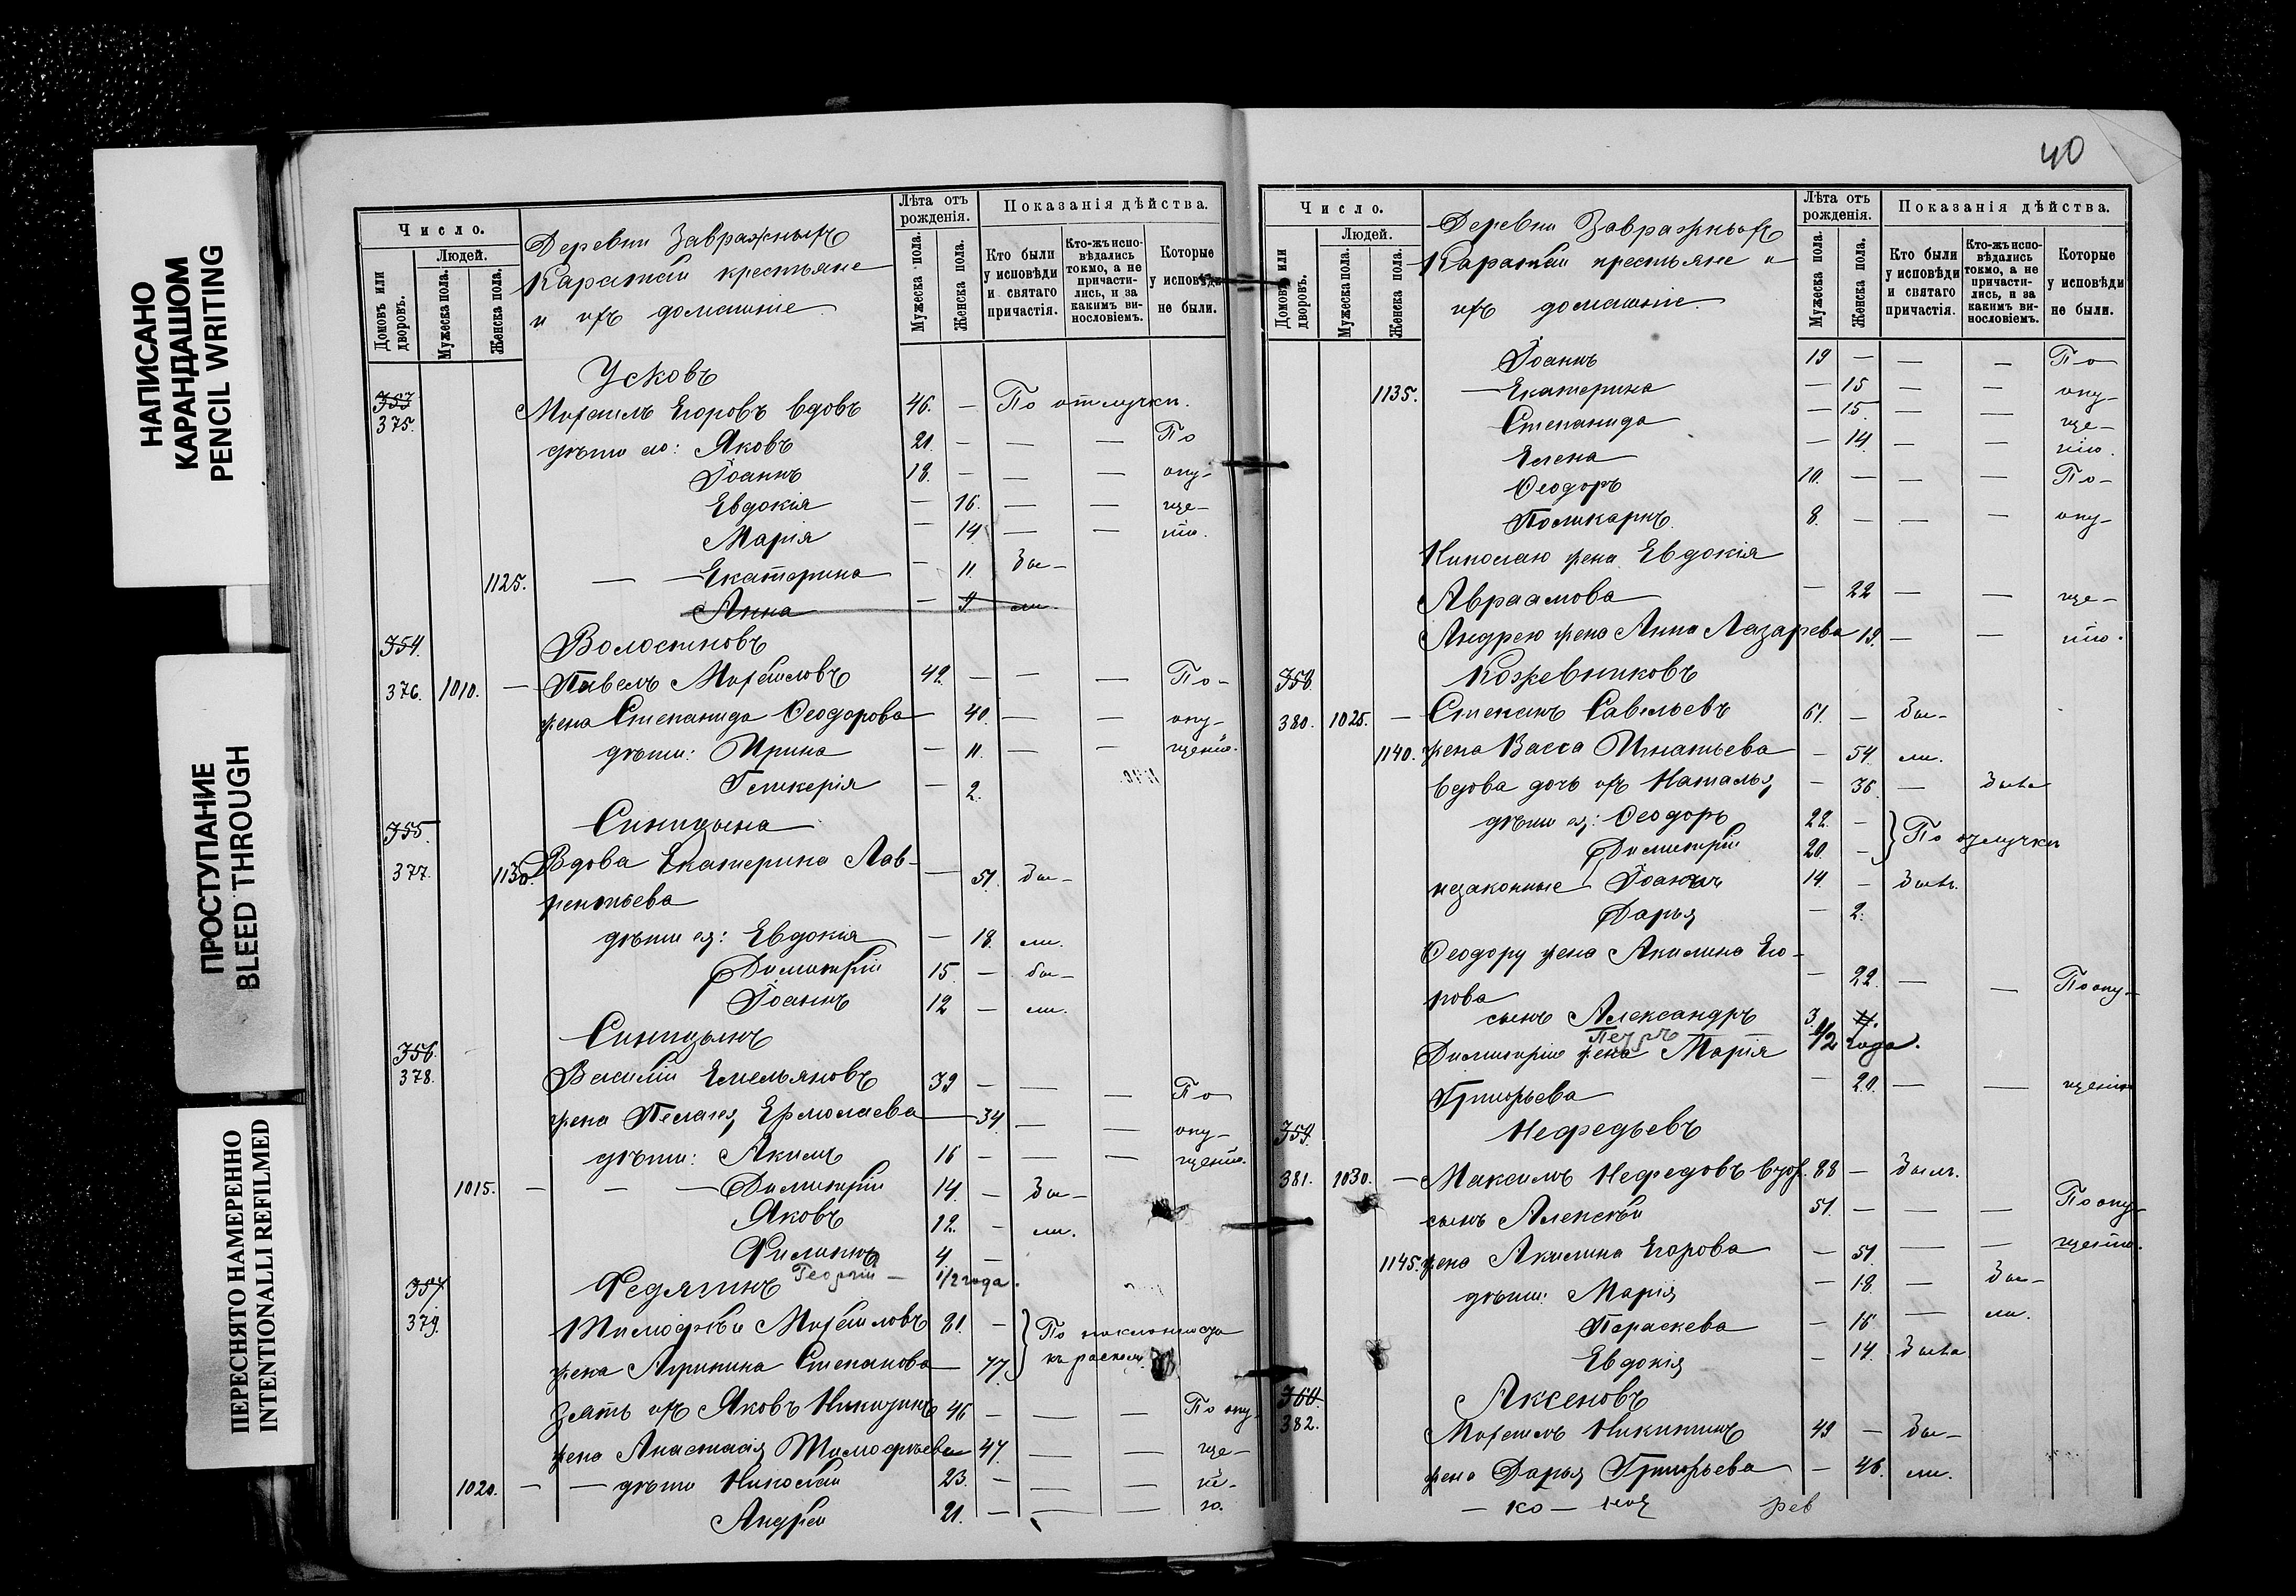 НАПИСАНО
КАРАНДАШОМ
PENCIL WRITING
ПРОСТУПАНИЕ
BLEED THROUGH
ПЕРЕСНЯТО НАМЕРЕННО
INTENTIONALLI REFILMED
Число.
Домовъ или дворовъ.
Людей.
Мужеска пола.
Женска пола.
Деревни Завражныхъ
Каратай крестьяне
и ихъ домашніе.
Лѣта отъ рожденія.
Мужеска пола.
Женска пола.
Показанія дѣйства.
Кто были у исповѣди и святаго причастія.
Кто-жъ исповѣдались токмо, а не причастились, и за какимъ винословіемъ.
Которые у исповѣди не были.
353 Усковъ
375. Михаилъ Егоровъ вдовъ 46. — По отлучки.
дѣти его: Яковъ 21. — — — По
Іоаннъ 18. — — — опу-
Евдокія — 16. — — ще-
Марія — 14 — — нію.
1125. — — Екатерина — 11. Бы-
Анна — 9 ли.
354. Волостновъ
376. 1010. — Павелъ Михайловъ 42. — — — По-
жена Степанида Ѳеодорова 40. — — опу-
дѣти: Ирина — 11. — — щенію.
Гликерія — 2.
355. Синицына
377. 1130. Вдова Екатерина Лав- — 51. Бы-
рентьева
дѣти ея: Евдокія — 18. ли.
Димитрій 15. — бы-
Іоаннъ 12 — ли.
356. Синицынъ
378. Василій Емельяновъ 39 — — — По
жена Пелагея Ермолаева — 34 — — опу-
дѣти: Акимъ 16 — — — щенію.
1015. — — Димитрій 14. — Бы-
Яковъ 12. — ли.
Филиппъ 4 —
Георгій — 1/2 года.
357. Федягинъ
379. Тимоѳей Михайловъ 81. — По наклонности
жена Агрипина Степанова — 77. къ расколу.
Зять ихъ Яковъ Никитинъ 46 — — — По опу-
жена Анастасія Тимоѳѣева 47. — — ще-
1020. — — дѣти Николай 23. — — — ні-
Андрей 21. — — — ю.
40
Число.
Домовъ или дворовъ.
Людей.
Мужеска пола.
Женска пола.
Деревни Завражныхъ
Каратай крестьяне и
ихъ домашніе.
Лѣта отъ рожденія.
Мужеска пола.
Женска пола.
Показанія дѣйства.
Кто были у исповѣди и святаго причастія.
Кто-жъ исповѣдались токмо, а не причастились, и за какимъ винословіемъ.
Которые у исповѣди не были.
Іоаннъ 19 — — — По
1135. — Екатерина — 15 — — опу-
Степанида — 15. — — ще-
Елена — 14. — — нію.
Ѳеодоръ 10. — — — По-
Поликарпъ 8. — — — опу-
Николаю жена Евдокія
Авраамова — 22 — — ще-
Андрею жена Анна Лазарева 19. — — нію.
358. Кожевниковъ
380. 1025. — Степанъ Савельевъ 61. — Бы-
1140. жена Васса Игнатьева — 54. ли.
вдова дочь ихъ Наталья — 36. — Была
дѣти ея: Ѳеодоръ 22. —
Димитрій 20. — По отлучки
незаконные Іоаннъ 14. — Былъ.
Дарья — 2.
Ѳеодору жена Акилина Его-
рова — 22. — — По опу-
сынъ Александръ 3.
Петръ 1/2 года.
Димитрію жена Марія
Григорьева — 20. — — щенію
359. Нефедьевъ
381. 1030. — Максимъ Нефедовъ вдов. 88 — Былъ.
сынъ Алексѣй 51. — — — По опу-
1145. жена Акилина Егорова — 51 — — щенію.
дѣти: Марія — 18. — Бы-
Параскева — 16 — ли.
Евдокія — 14. Была
360. Аксеновъ
382. Михаилъ Никитинъ 49 — Бы-
жена Дарья Григорьева — 46. ли.
— ко —
рев